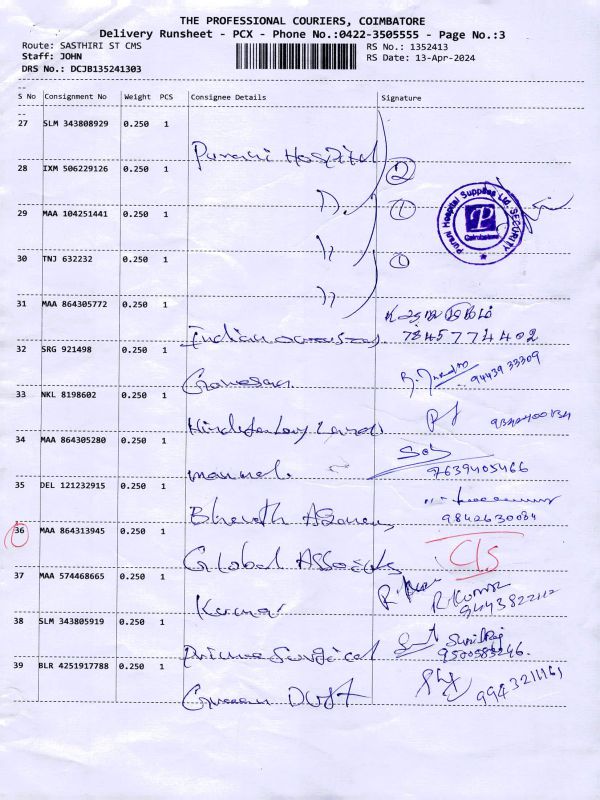 THE PROFESSIONAL COURIERS, COIMBATORE
Delivery Runsheet - PCX - Phone No.:0422-3505555 - Page No.:3
Route: SASTHIRI ST CMS
RS No.: 1352413
Staff: JOHN
RS Date: 13-Apr-2024
DRS No.: DCJB135241303
S No Consignment No Weight PCS Consignee Details Signature
27 SLM 343808929 0.250 1
Purani Hospital
28 IXM 506229126 0.250 1 2
29 MAA 104251441 0.250 1 1
Purani Hospital Supplies Ltd. SECURITY
P
Coimbatore
30 TNJ 632232 0.250 1 1
31 MAA 864305772 0.250 1
Indian
7845774402
32 SRG 921498 0.250 1
Ganesan
94439 33309
33 NKL 8198602 0.250 1
34 MAA 864305280 0.250 1
9639405466
35 DEL 121232915 0.250 1
Bharath
9842630084
36 MAA 864313945 0.250 1
Global Associates
CLS
37 MAA 574468665 0.250 1
Kumar
R. Kumar
38 SLM 343805919 0.250 1
Prime Surgical
9500585246
39 BLR 4251917788 0.250 1
9943211161